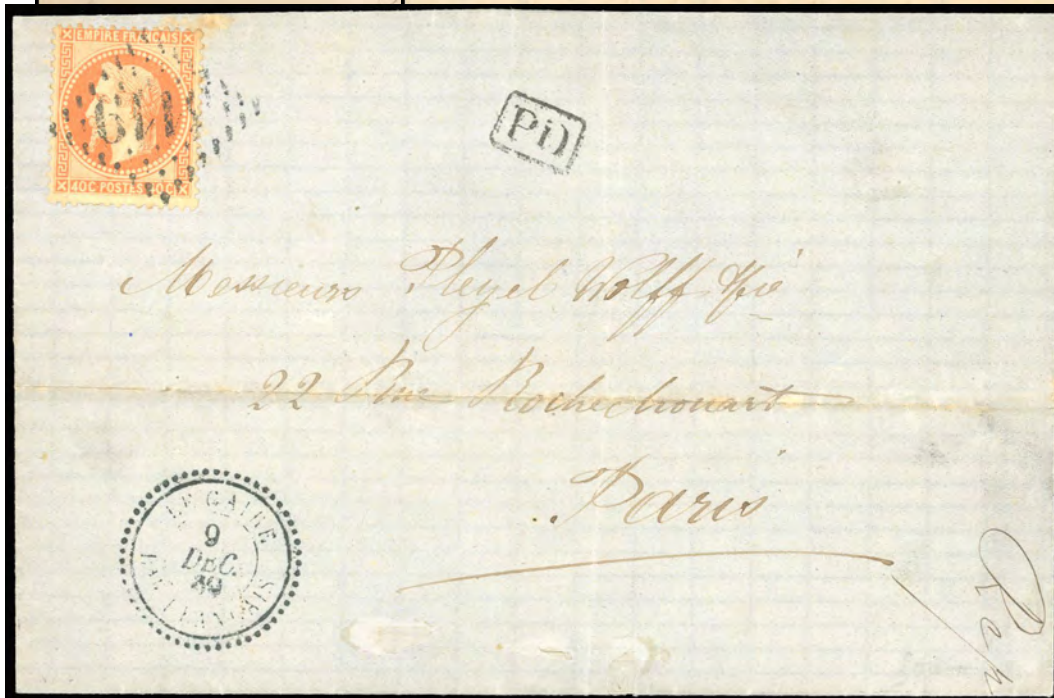 EMPIRE FRANÇAIS
40C POSTES 40C
PD
Messieurs Pleyel Wolff & Cie
22 Rue Rochechouart
Paris
LE CAIRE
9
DEC.